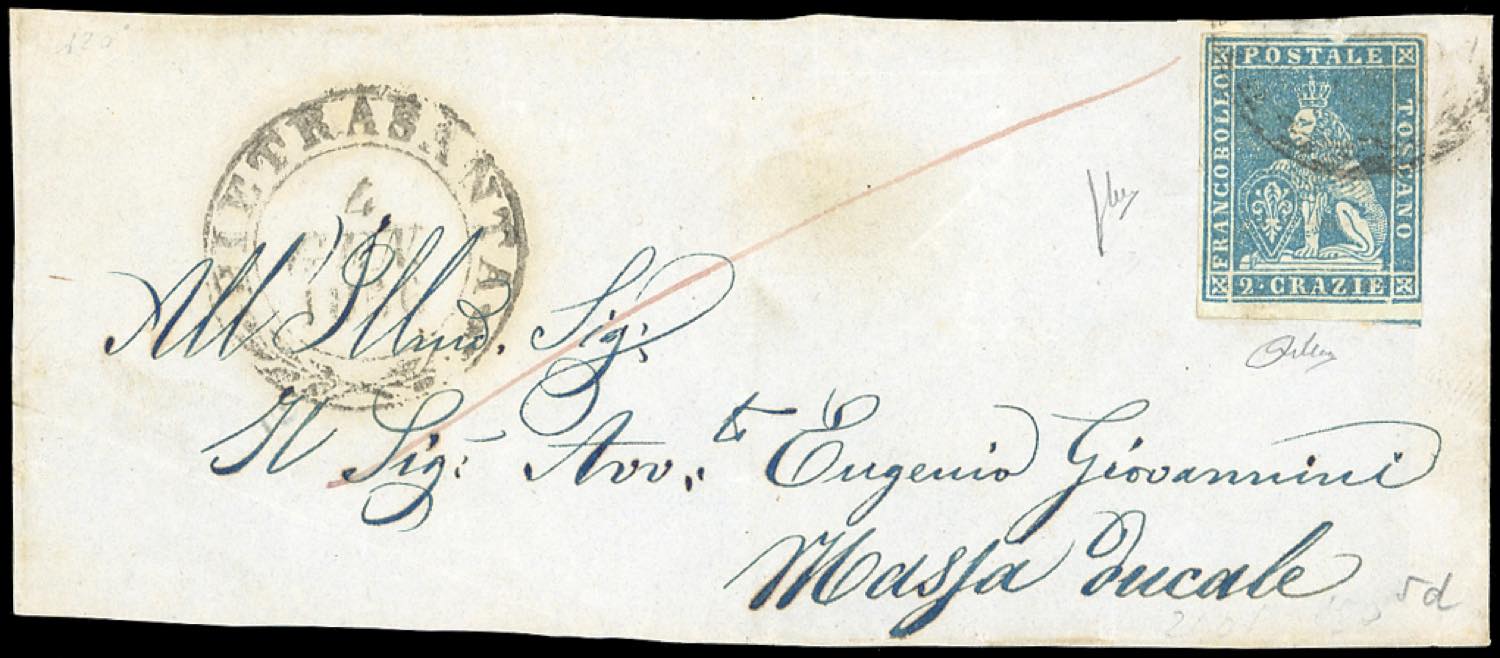 PIETRASANTA
4
GEN
FRANCOBOLLO
POSTALE
TOSCANO
2·CRAZIE
All' Illmo. Sig:
Il Sig: Avv.to Eugenio Giovannini
Massa Ducale
5d